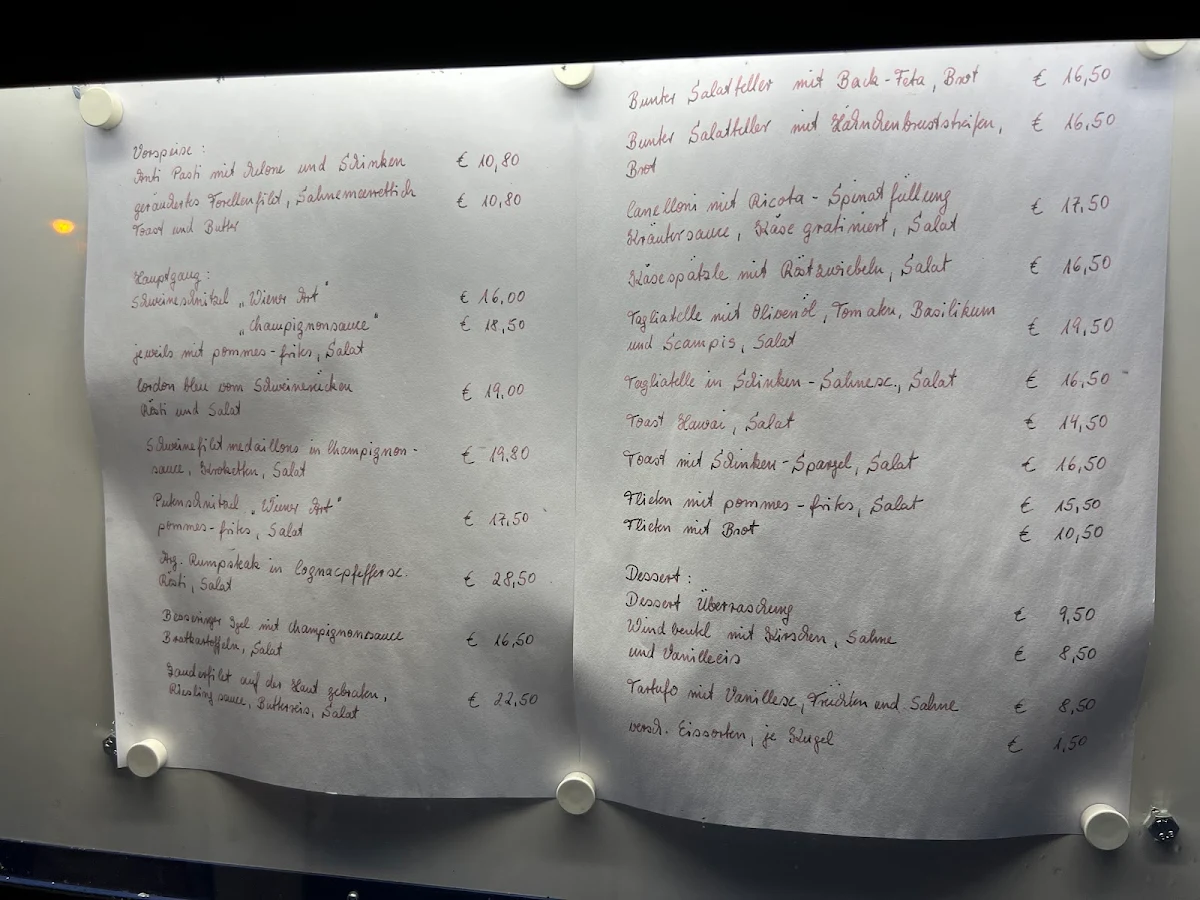 Vorspeise:
Anti Pasti mit Melone und Schinken € 10,80
geräuchertes Forellenfilet, Sahnemeerrettich € 10,80
Toast und Butter
Hauptgang:
Schweineschnitzel „Wiener Art" € 16,00
„Champignonsauce" € 18,50
jeweils mit pommes-frites, Salat
Cordon bleu vom Schweinerücken € 19,00
Rösti und Salat
Schweinefilet medaillons in Champignon- € 19,80
sauce, Kroketten, Salat
Putenschnitzel „Wiener Art"
pommes-frites, Salat € 17,50
Arg. Rumpsteak in Cognacpfeffersc. € 28,50
Rösti, Salat
Besseringer Igel mit Champignonsauce € 16,50
Bratkartoffeln, Salat
Zanderfilet auf der Haut gebraten,
Rieslingsauce, Butterreis, Salat € 22,50
Bunter Salatteller mit Back-Feta, Brot € 16,50
Bunter Salatteller mit Hähnchenbruststreifen, € 16,50
Brot
Canelloni mit Ricota-Spinatfüllung € 17,50
Kräutersauce, Käse gratiniert, Salat
Käsespätzle mit Röstzwiebeln, Salat € 16,50
Tagliatelle mit Olivenöl, Tomaten, Basilikum € 19,50
und Scampis, Salat
Tagliatelle in Schinken-Sahnesc., Salat € 16,50
Toast Hawai, Salat € 14,50
Toast mit Schinken-Spargel, Salat € 16,50
Flieten mit pommes-frites, Salat € 15,50
Flieten mit Brot € 10,50
Dessert:
Dessert Überraschung € 9,50
Windbeutel mit Kirschen, Sahne
und Vanilleeis € 8,50
Tartufo mit Vanillesc, Früchten und Sahne € 8,50
versch. Eissorten, je Kugel € 1,50